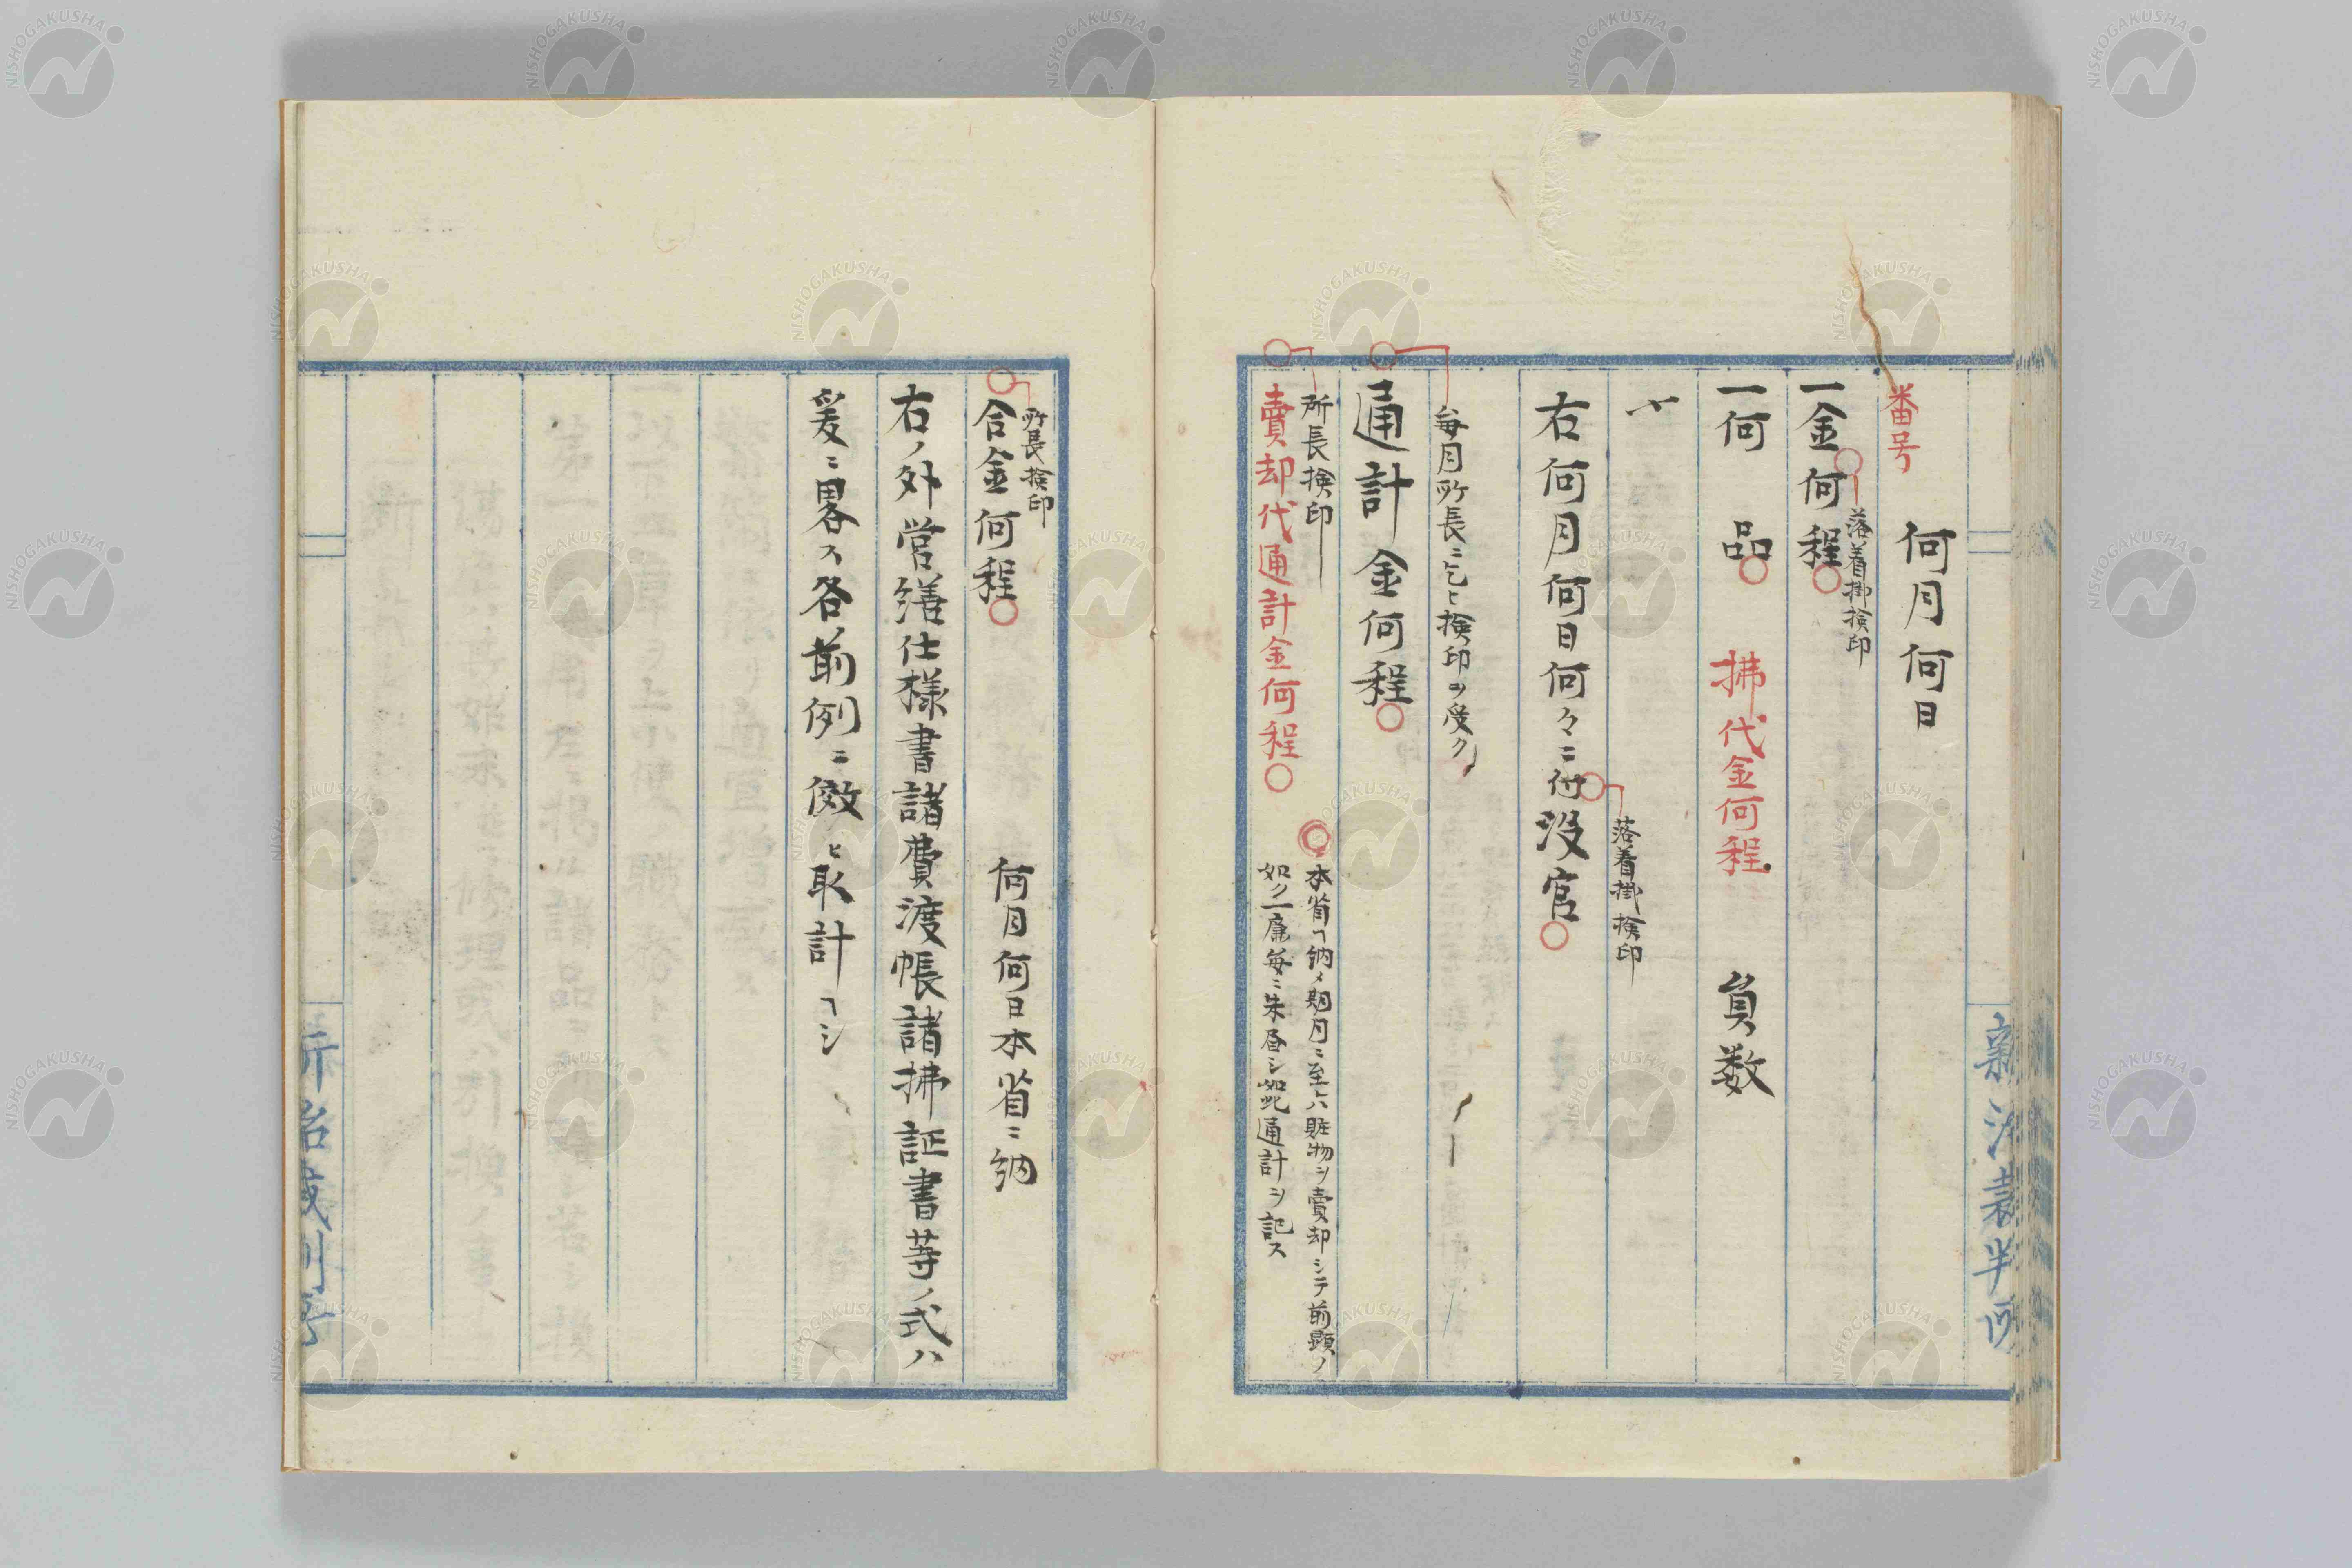 番号
何月何日
一金何程
落着掛検印
一何品 拂代金何程 負数
落着掛検印
右何月何日何々ニ付没官
毎月所長ニ乞ヒ検印ヲ受ク
通計金何程
所長検印
賣却代通計金何程
本省ヘ納メ期月ニ至ハ賍物ヲ賣却シテ前顕ノ
如ク一廉毎ニ朱書シ如此通計ヲ記ス
新治裁判所
所長検印
合金何程
何月何日本省ニ納
右ノ外営繕仕様書諸費渡帳諸拂証書等ノ式ハ
爰ニ畧ス各前例ニ倣ヒ取計ヘシ
新治裁判所
NISHOGAKUSHA